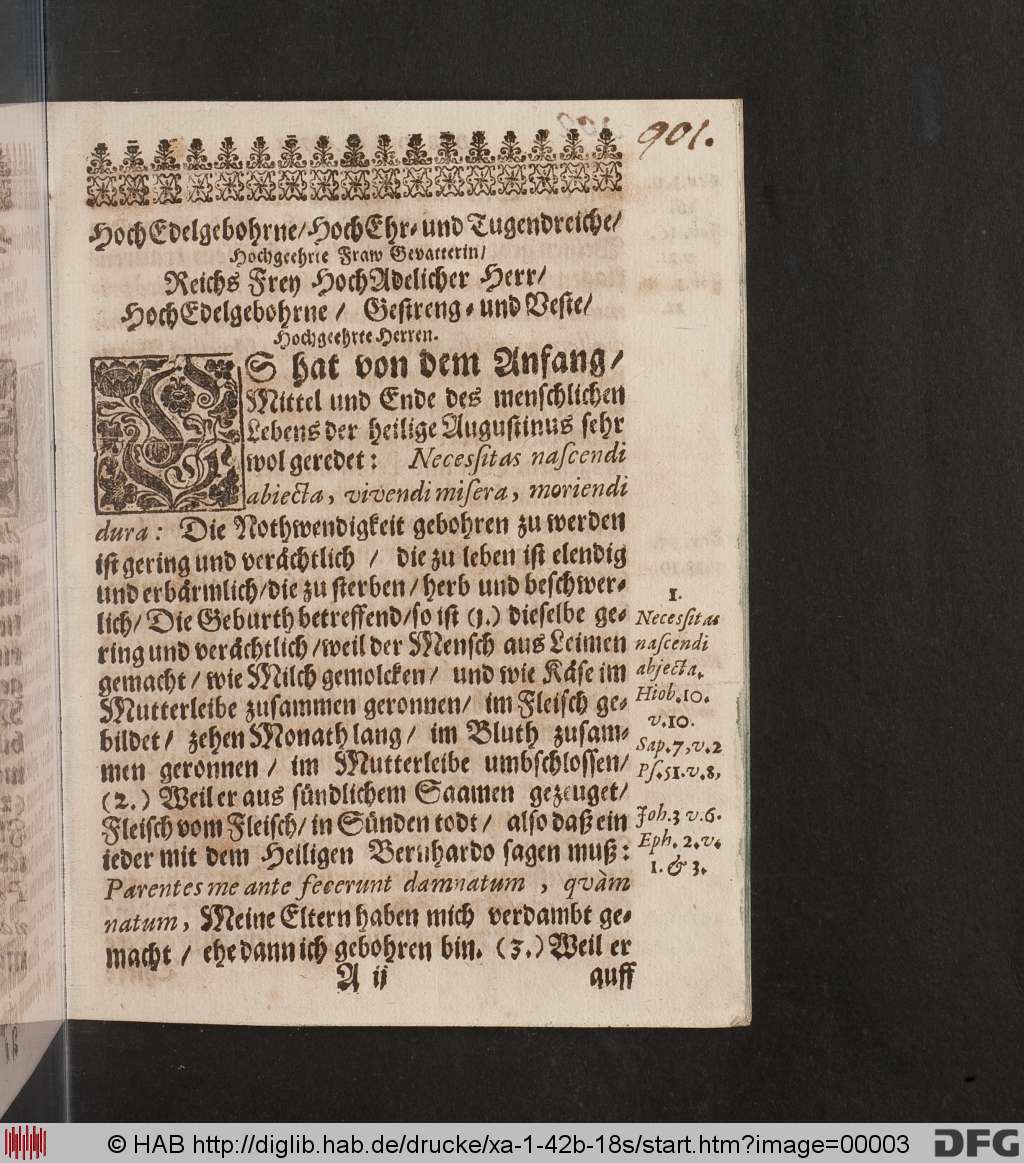 901.
HochEdelgebohrne/HochEhr- und Tugendreiche/
Hochgeehrte Fraw Gevatterin/
Reichs Frey HochAdelicher Herr/
HochEdelgebohrne / Gestreng- und Veste/
Hochgeehrte Herren.
ES hat von dem Anfang/
Mittel und Ende des menschlichen
Lebens der heilige Augustinus sehr
wol geredet: Necessitas nascendi
abiecta, vivendi misera, moriendi
dura: Die Nothwendigkeit gebohren zu werden
ist gering und verächtlich / die zu leben ist elendig
und erbärmlich/die zu sterben/herb und beschwer-
lich/ Die Geburth betreffend/so ist (1.) dieselbe ge-
ring und verächtlich/weil der Mensch aus Leimen
gemacht/ wie Milch gemolcken/ und wie Käse im
Mutterleibe zusammen geronnen/ im Fleisch ge-
bildet/ zehen Monath lang/ im Bluth zusam-
men geronnen / im Mutterleibe umbschlossen/
(2.) Weil er aus sündlichem Saamen gezeuget/
Fleisch vom Fleisch/ in Sünden todt/ also daß ein
ieder mit dem Heiligen Bernhardo sagen muß:
Parentes me ante fecerunt damnatum, qvàm
natum, Meine Eltern haben mich verdambt ge-
macht / ehe dann ich gebohren bin. (3.) Weil er
A ij
auff
1.
Necessitas
nascendi
abjecta.
Hiob.10.
v.10.
Sap.7,v.2
Ps.51.v.8,
Joh.3 v.6.
Eph. 2.v.
1. & 3.
© HAB http://diglib.hab.de/drucke/xa-1-42b-18s/start.htm?image=00003
DFG